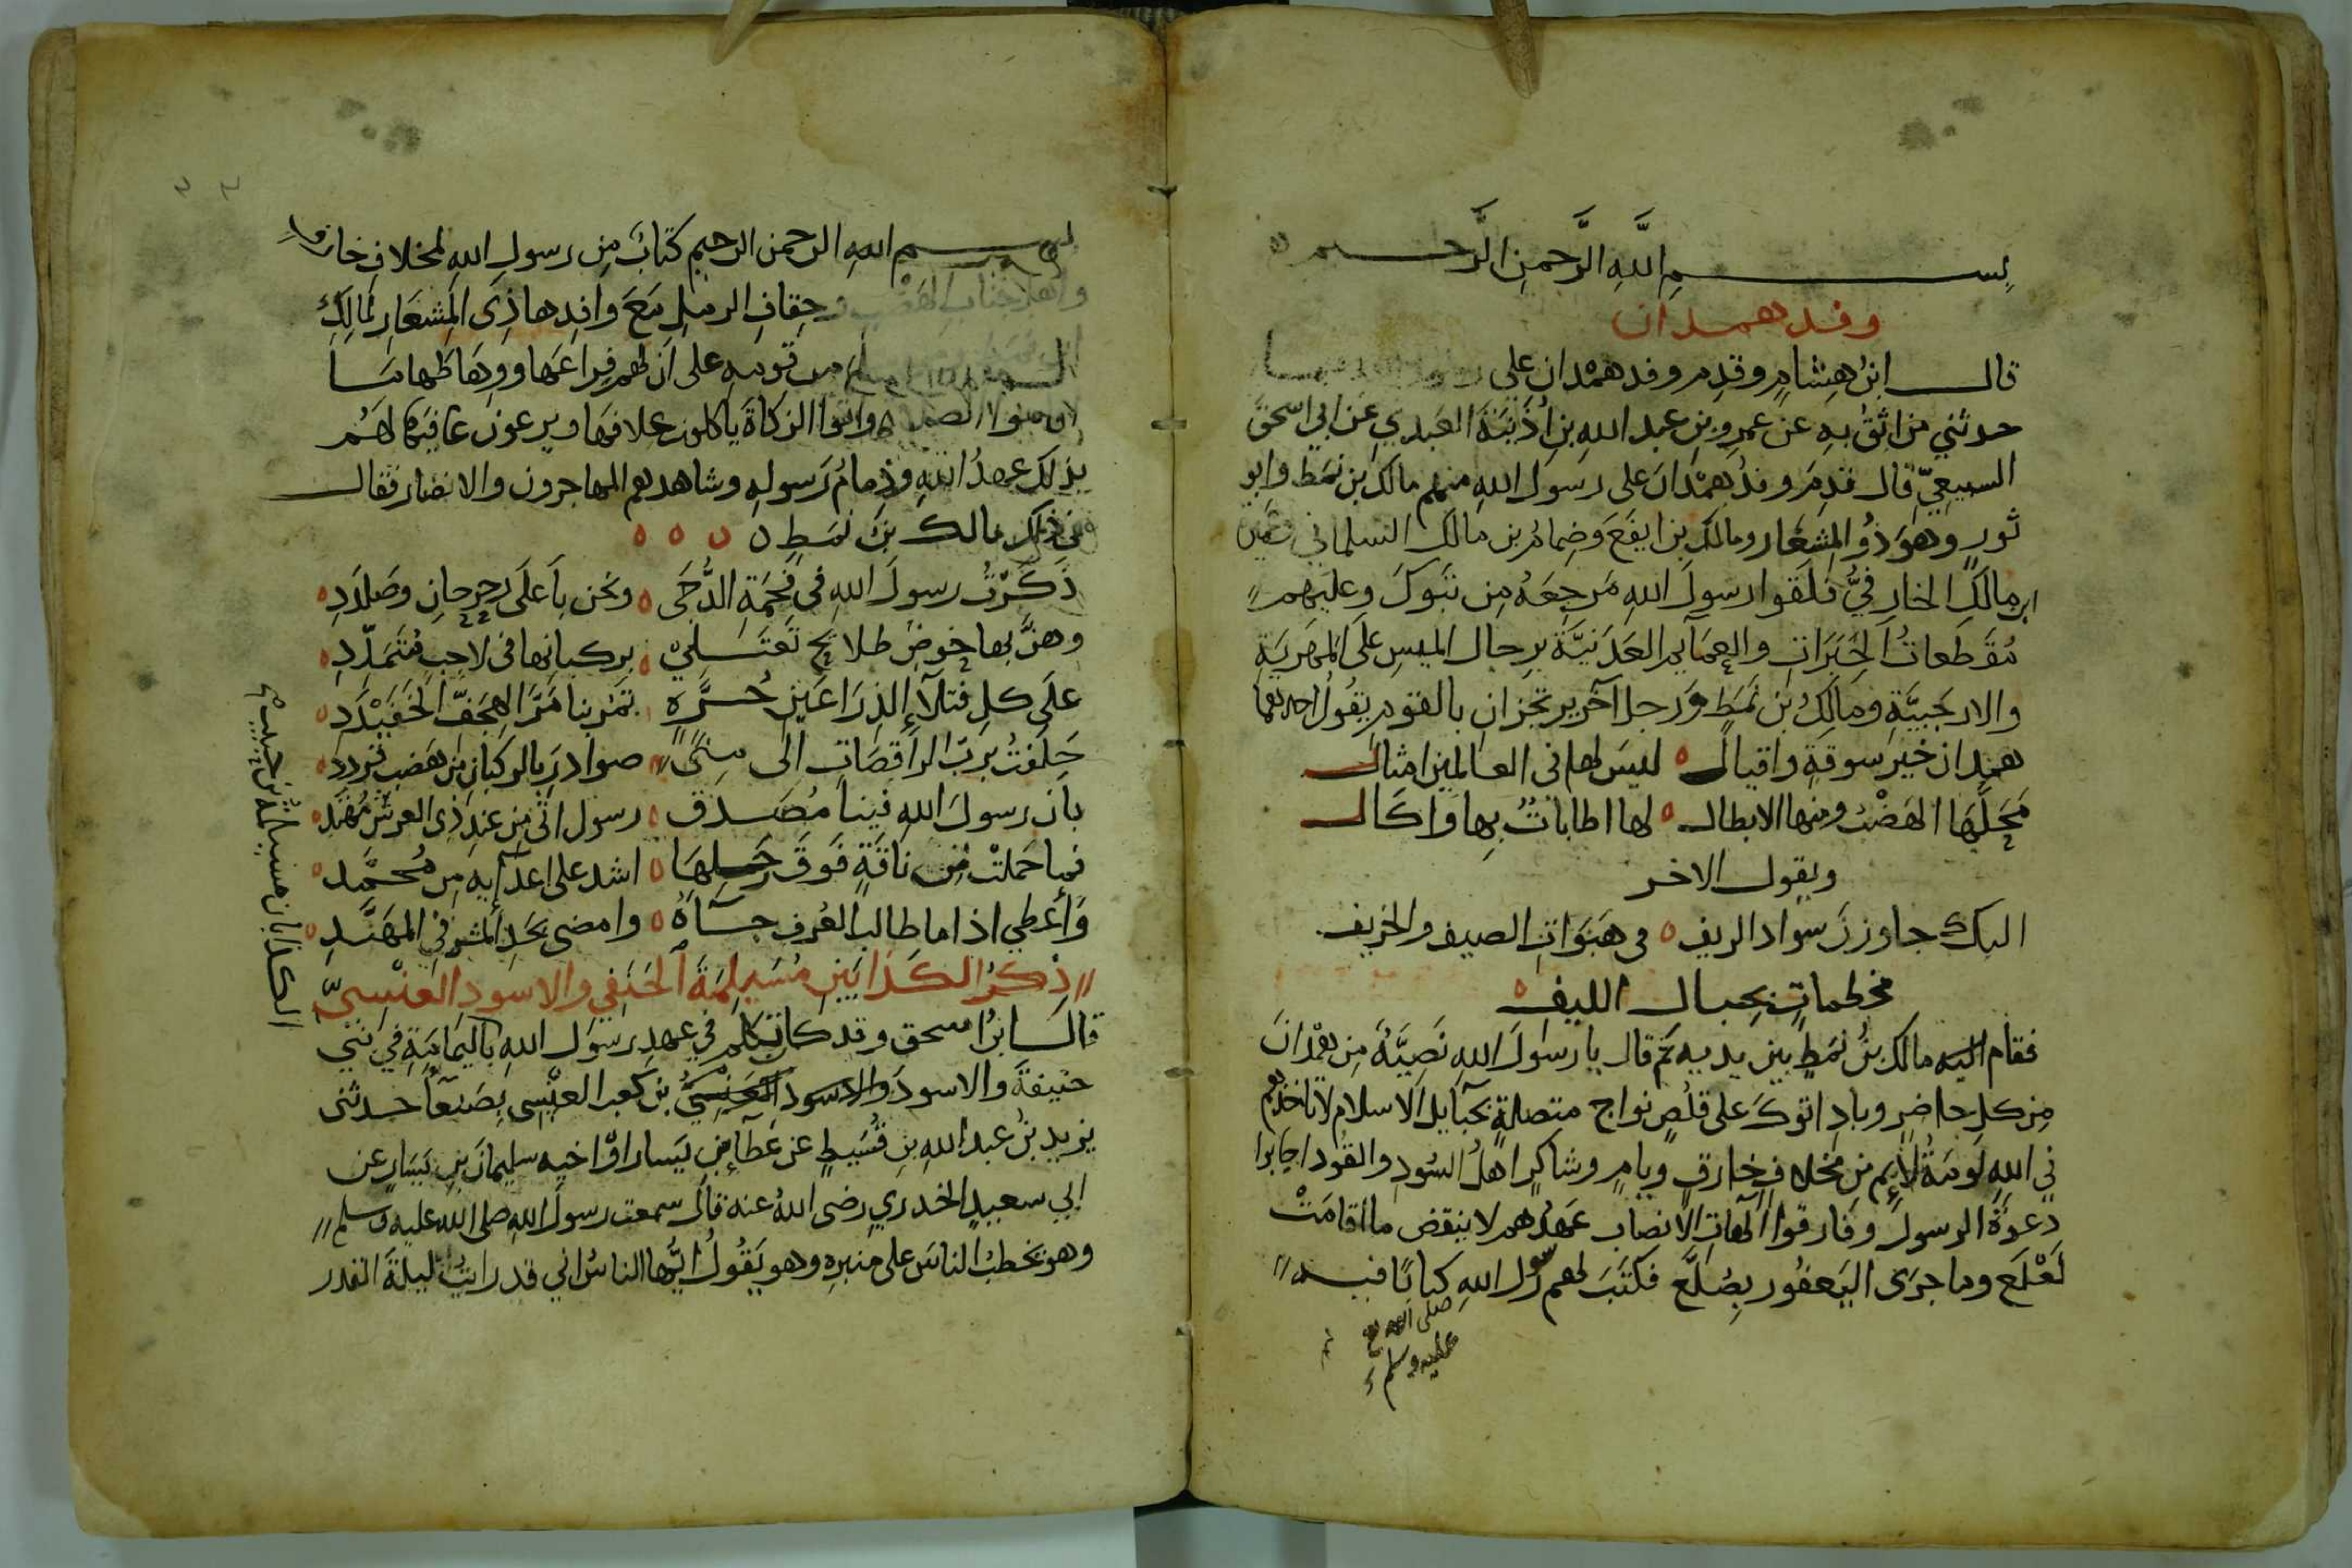 بسم الله الرحمن الرحيم
وفد همدان
قال ابن هشام وقدم وفد همدان على
حدثني من اثق به عن عمرو بن عبد الله بن اُذَينَةَ العَبدي عن ابي اسحق
السبيعيّ قال قدِمَ وفدُ همْدانَ على رسول الله منهم مالك بن نمط وابو
ثورٍ وهو ذُو المشعار ومالك بن ايفَعَ وضِمامُ بن مالك السلماني وعَمِيرَة
ابن مالك الخارفيُّ فلَقوا رسولَ الله مَرجِعَهُ مِن تبوكَ وعليهم
مُقَطعاتُ الحِبَرَاتِ والعمايم العَدَنيَّة برحال الميسِ على المَهريَةِ
والارحَبيَّةِ ومالكُ بن نمَطٍ وَرجل آخر يرتجزان بالقوم يقُولُ احدهما
همدان خير سوقةٍ واقيال ٥ ليسَ لها في العالمين امثال
مَحَلّهَا الهَضْبُ ومنها الابطال ٥ لها اطاباتٌ بِها وَاكال
ويقول الاخر
اليك جاوزنَ سواد الريف ٥ في هَبَوَاتِ الصيف والخريف
مخطماتٍ بحبال الليف ٥
فقام اليه مالك بنُ نمَطٍ بين يديه ثم قال يا رسولَ الله نَصِيَّةٌ مِن همْدانَ
مِن كل حاضِرٍ وبادٍ اتوكَ على قلُصٍ نواجٍ متصلةٍ بحبايل الاسلام لا تاخذهم
في اللهِ لومَةُ لائِم من مخلافِ خارفٍ ويامٍ وشاكرٍ اهلُ السُودِ والقَود اجابوا
دعوَةَ الرسولِ وفارقوا الَهاتِ الانصاب عهدُهم لا ينقض ما اقامَتْ
لَعْلَع وما جرَى اليَعفُور بِصُلَّع فكتَبَ لهم رسول الله كتابًا فيه
صلى الله
عليه وسلم
بسم الله الرحمن الرحيم كتابٌ مِن رسول الله لمخلاف خارف
واهل جناب الهَضْب وحِقافِ الرملِ مَعَ وافِدِها ذِى المِشعَارِ لمالِك
من قومِهِ على اَن لهم فِراعَها ووِهَاطَها ما
اقاموا الصلاة واتوا الزكاةَ ياكلون علافها ويرعون عافيَها لهُم
بذلكَ عهدُ اللهِ وذِمامُ رَسولِهِ وشاهدهم المهاجرون والانصار فقال
في ذلك مالك بن نمَطٍ ٥ ٥ ٥ ٥
ذَكَرْتُ رسولَ الله في فَحْمَةِ الدُّجَى ٥ ونحن بأعلى رحرحانِ وصَلدَدِ ٥
وهنَّ بها خوضٌ طلايحُ تَعْتَلِي ٥ بركبانها في لاحِبٍ مُتَمَدِّدِ ٥
علَى كل فتلآءِ الذِرَاعَين جُسرَةٍ ٥ تمُر بنا مَرَّ الهِجَفِّ الخَفَيْدَدِ ٥
حَلَفتُ برَبّ الراقِصَاتِ الى مِنًى ٥ صوادِرَ بالركبانِ من هَضبِ قردد ٥
بان رسولَ اللهِ فينا مُصَدق ٥ رسول اتى مِن عِندِ ذِى العرش مُهتدِ ٥
فما حَملتْ مِن ناقَةٍ فَوقَ رَحلِها ٥ اشد على اعدآيه مِن مُحمَّدِ ٥
وَأعطِي اذا ما طالبُ العُرفِ جآءَهُ ٥ وامضى بحَدِ المَشرفِيِّ المهَنَّدِ ٥
ذِكرُ الكَذابَينِ مُسَيلِمَةَ الحَنَفِي والاسوَدِ العَنْسِيّ
قال ابنُ اسحق وقد كان تكلم في عهدِ رسول اللهِ باليَمَامَةِ في بني
حنيفَةَ والاسود والاسود العَنسِيُّ بن كعب العَنْسِى بِصَنعآءَ حدثنى
يزيد بنُ عبد اللهِ بنِ قُسَيطٍ عن عَطآءِ بنِ يَسار اوْ اخيه سليمانَ بنِ يَسَارٍ عن
ابي سعيدٍ الخدري رضى اللهُ عنه قال سمعت رسولَ اللهِ صلى الله عليه وسلم
وهو يخطبُ الناسَ على منبرِه وهو يَقُولُ ايُّها الناسُ اني قد رايتُ ليلةَ القدر
الكذابان مسيلمة بن حبيب